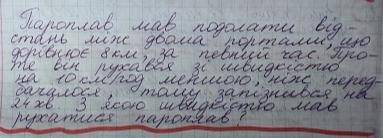 Пароплав мав подолати від-
стань між двома портами, що
дорівнює 8км, за певний час. Про-
те він рухався зі швидкістю
на 10км/год меншою, ніж перед-
бачалося, тому запізнився на
24хв. З якою швидкістю мав
рухатися пароплав?